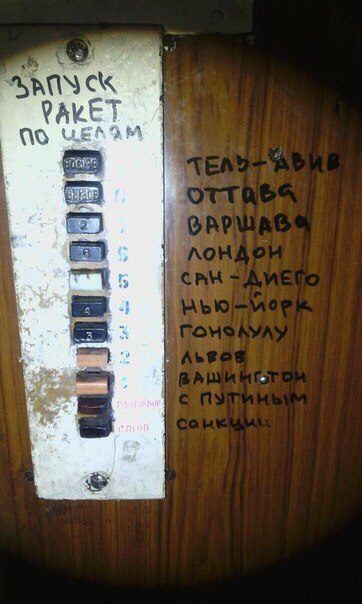 ЗАПУСК
РАКЕТ
ПО ЦЕЛЯМ
ТЕЛЬ-АВИВ
ОТТАВА
7 ВАРШАВА
6 6 ЛОНДОН
5 САН-ДИЕГО
4 4 НЬЮ-ЙОРК
3 3 ГОНОЛУЛУ
2 ЛЬВОВ
1 ВАШИНГТОН
РАЗГОВОР С ПУТИНЫМ
СТОП САНКЦИИ